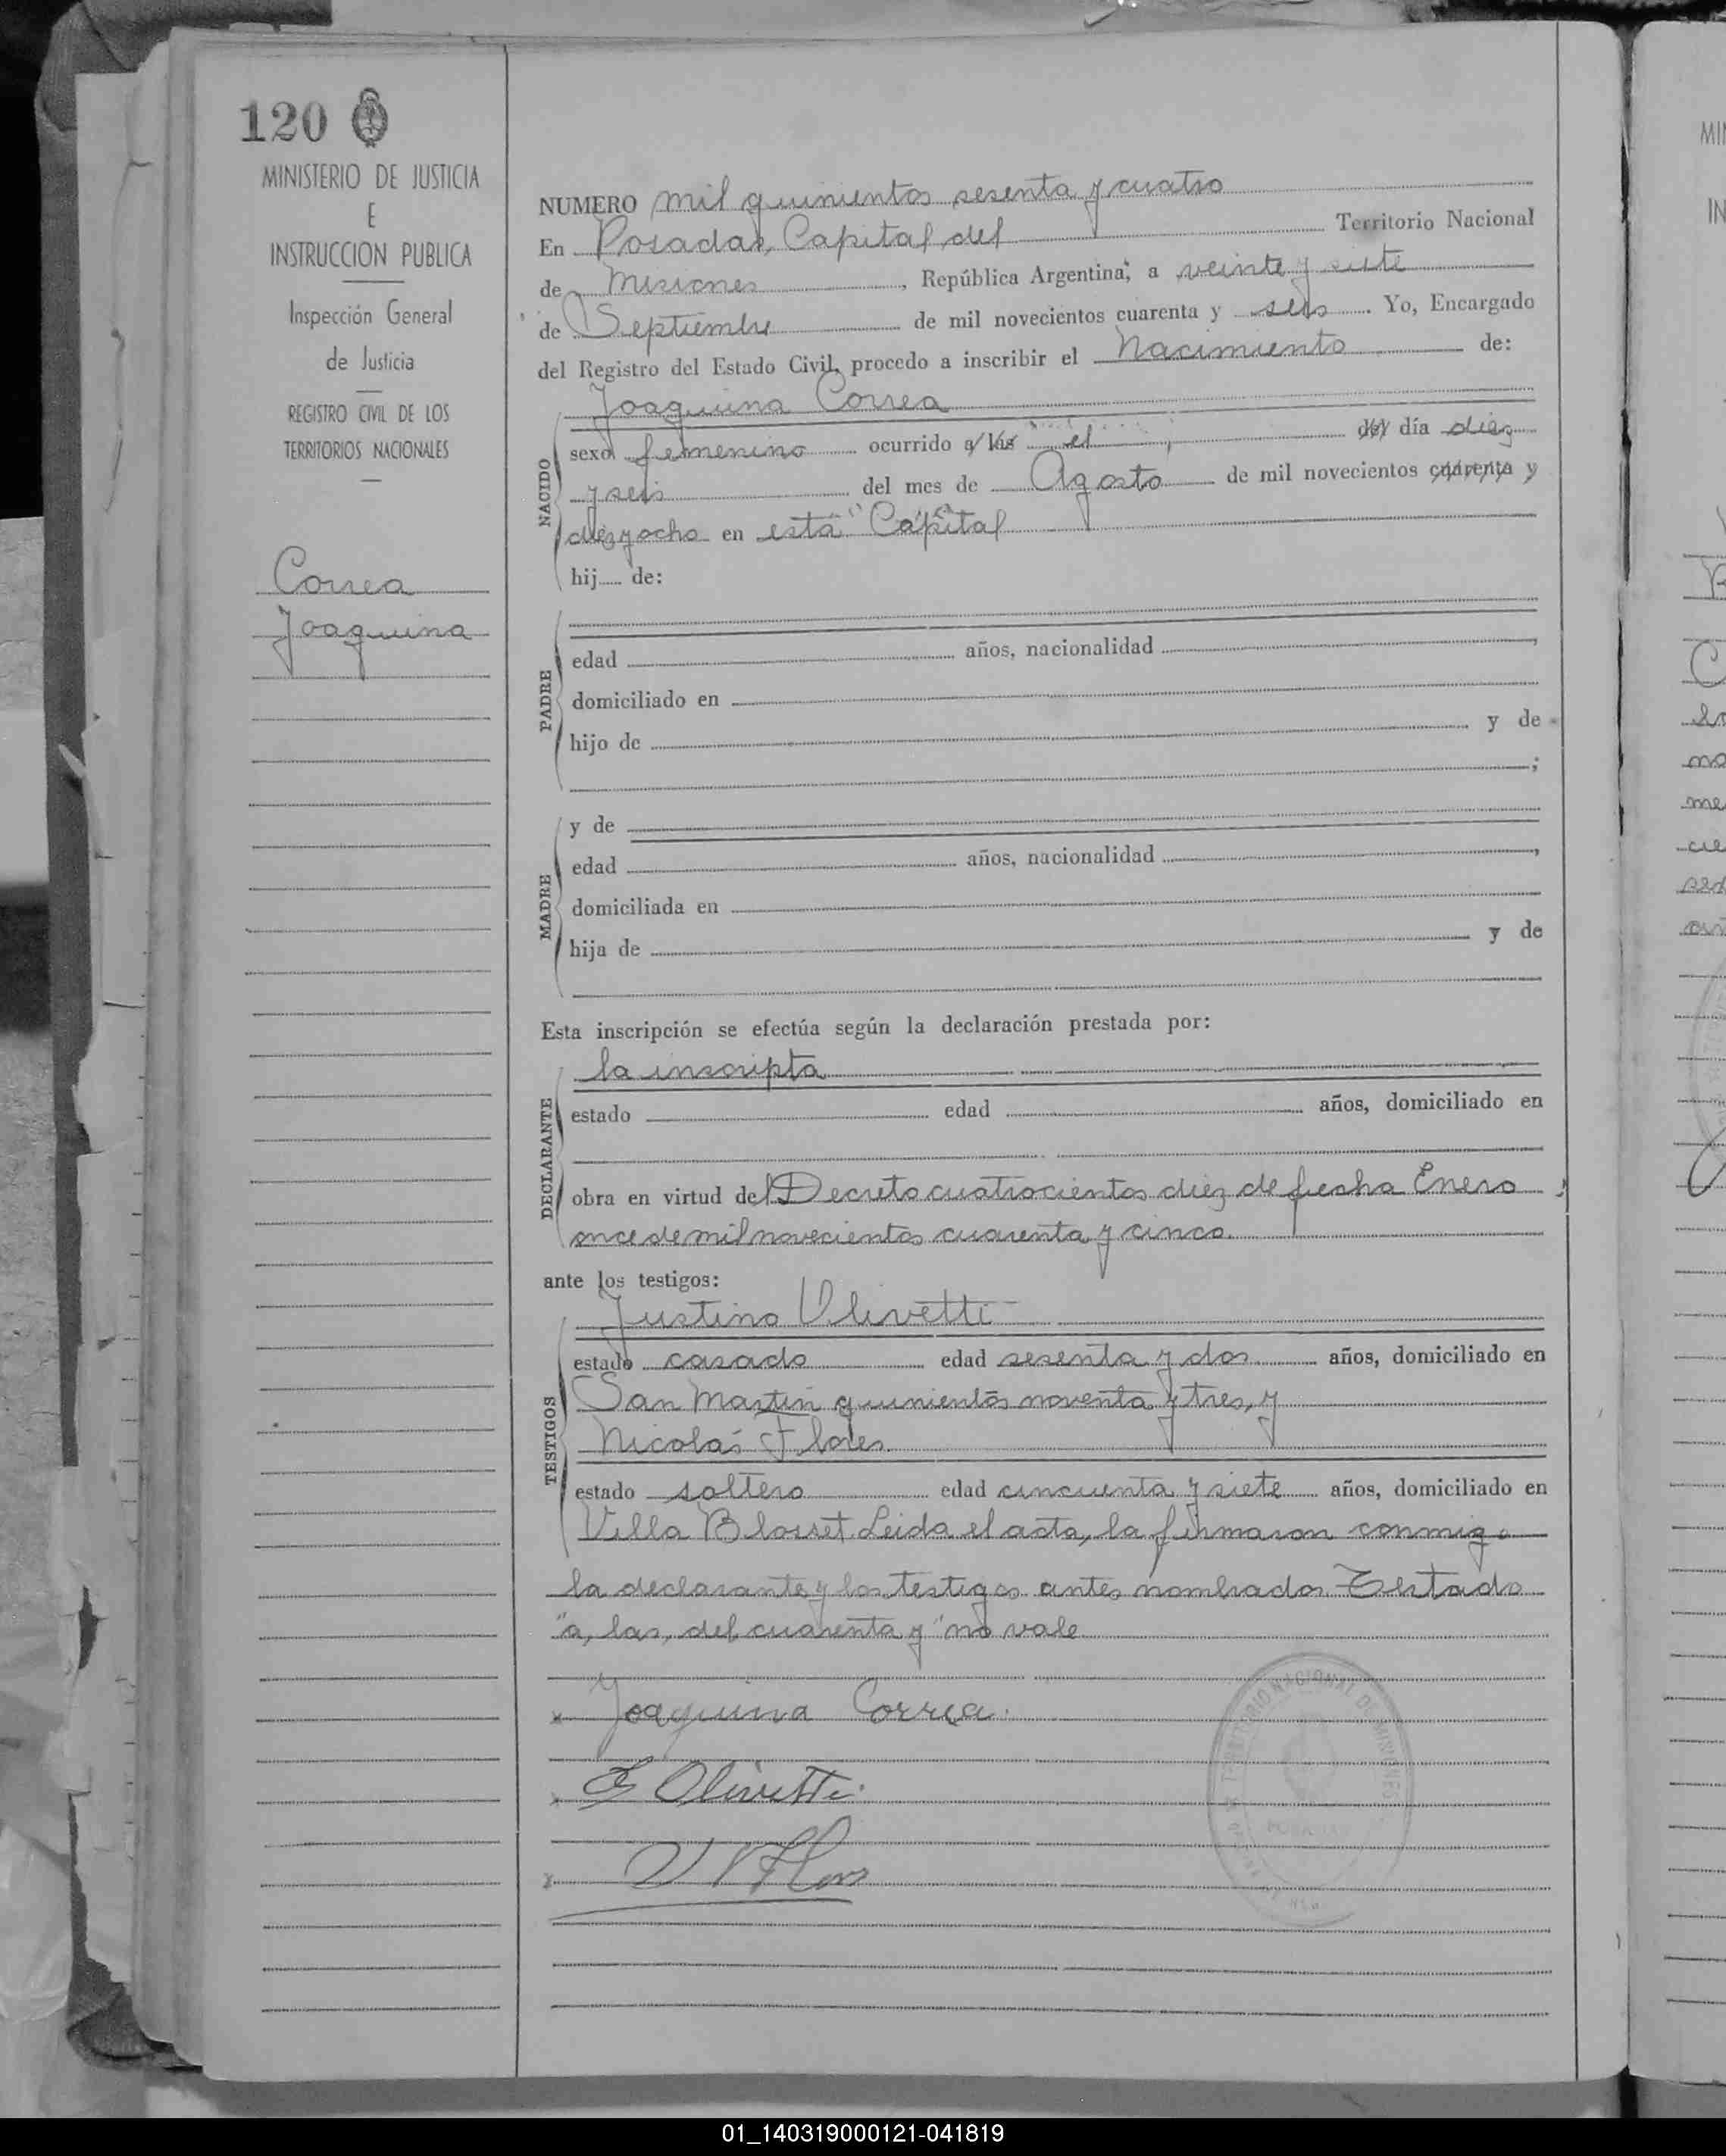 120
MINISTERIO DE JUSTICIA
E
INSTRUCCION PUBLICA
Inspección General
de Justicia
REGISTRO CIVIL DE LOS
TERRITORIOS NACIONALES
Correa
Joaquina
NUMERO mil quinientos sesenta y cuatro
En Posadas, Capital del Territorio Nacional
de Misiones, República Argentina, a veinte y siete
de Septiembre de mil novecientos cuarenta y seis. Yo, Encargado
del Registro del Estado Civil, procedo a inscribir el Nacimiento de:
Joaquina Correa
NACIDO
sexo femenino ocurrido a las el del día diez
y seis del mes de Agosto de mil novecientos cuarenta y
diez y ocho en esta Capital
hij de:
PADRE
edad años, nacionalidad ,
domiciliado en
hijo de y de
;
MADRE
y de
edad años, nacionalidad ,
domiciliada en
hija de y de
Esta inscripción se efectúa según la declaración prestada por:
DECLARANTE
la inscripta
estado edad años, domiciliado en
obra en virtud del Decreto cuatrocientos diez de fecha Enero
once de mil novecientos cuarenta y cinco.
ante los testigos:
TESTIGOS
Justino Olivetti
estado casado edad sesenta y dos años, domiciliado en
San Martin quinientos noventa y tres, y
Nicolás Flores
estado soltero edad cincuenta y siete años, domiciliado en
Villa Blosset. Leida el acta, la firmaron conmigo
la declarante y los testigos antes nombrados. Testado
"a, las, del, cuarenta y" no vale
Joaquina Correa.
J Olivetti
TERRITORIO NACIONAL DE MISIONES
POSADAS
01_140319000121-041819